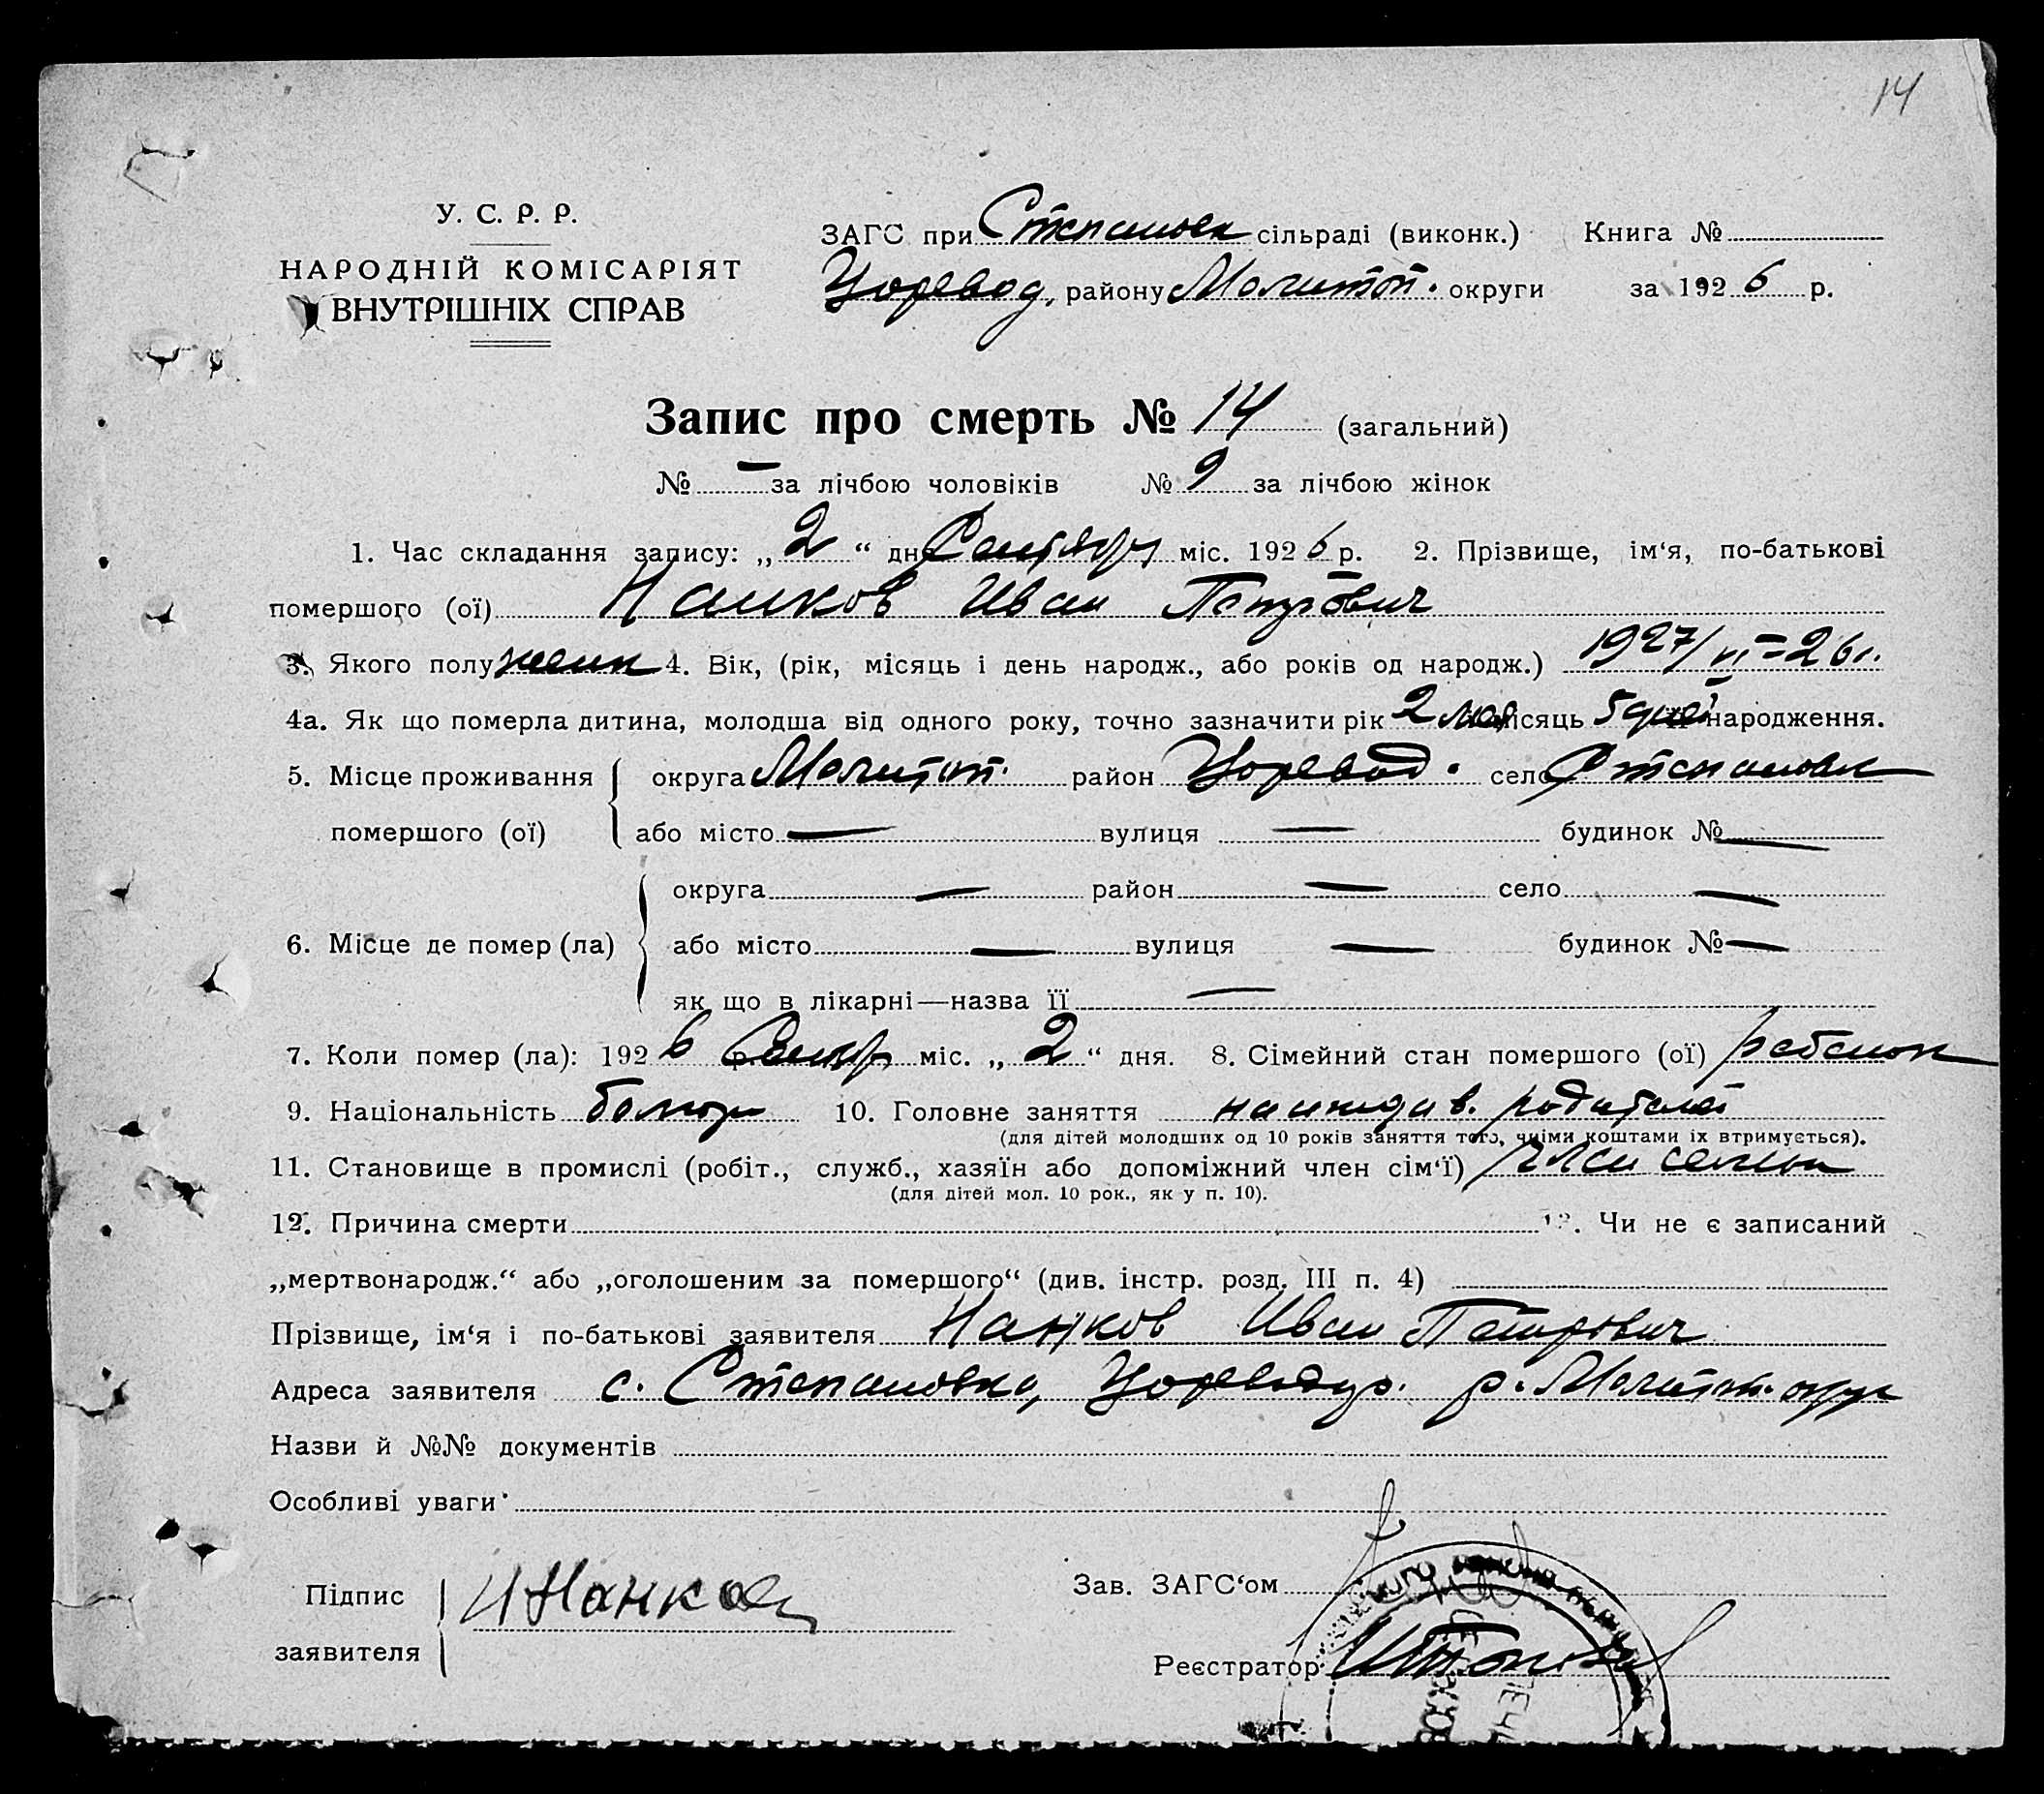 14
У. С. Р. Р.
НАРОДНІЙ КОМІСАРІЯТ
ВНУТРІШНІХ СПРАВ
ЗАГС при Степановк сільраді (виконк.) Книга №
Цоревод, району Мелитоп. округи за 1926 р.
Запис про смерть № 14 (загальний)
№ — за лічбою чоловіків № 9 за лічбою жінок
1. Час складання запису: „2“ дня Сентября міс. 1926 р. 2. Прізвище, ім‘я, по-батькові
помершого (ої) Нанков Иван Петрович
3. Якого полу женск 4. Вік, (рік, місяць і день народж., або років од народж.) 1927/VI=26г.
4а. Як що померла дитина, молодша від одного року, точно зазначити рік 2 мес місяць 5 дней народження.
5. Місце проживання округа Мелитоп. район Цоревод. село Степановк
помершого (ої) або місто — вулиця — будинок № —
округа — район — село —
6. Місце де помер (ла) або місто — вулиця — будинок № —
як що в лікарні—назва її —
7. Коли помер (ла): 1926 р. Сентяр міс. „2“ дня. 8. Сімейний стан помершого (ої) ребенок
9. Національність болгар 10. Головне заняття на иждив. родителей
(для дітей молодших од 10 років заняття того, чиїми коштами їх втримується).
11. Становище в промислі (робіт., служб., хазяїн або допоміжний член сім‘ї) член семьи
(для дітей мол. 10 рок., як у п. 10).
12. Причина смерти 13. Чи не є записаний
„мертвонародж.“ або „оголошеним за помершого“ (див. інстр. розд. III п. 4)
Прізвище, ім‘я і по-батькові заявителя Нанков Иван Петрович
Адреса заявителя с. Степановка, Цореводр. р. Мелитоп. окру
Назви й №№ документів
Особливі уваги
Підпис заявителя И Нанков
Зав. ЗАГС‘ом
Реєстратор